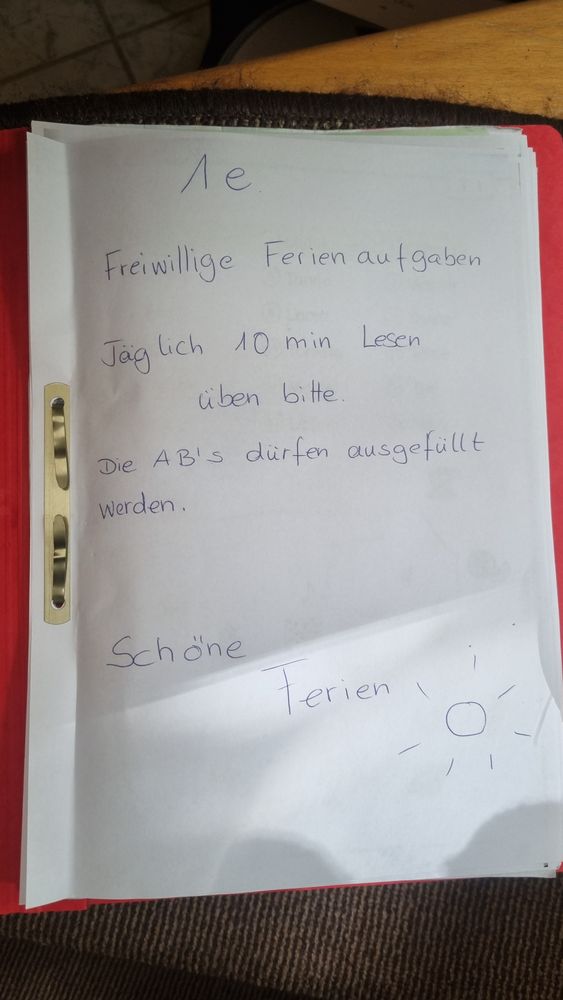 1e.
Freiwillige Ferienaufgaben
Täglich 10 min Lesen
üben bitte.
Die AB's dürfen ausgefüllt
werden.
Schöne
Ferien